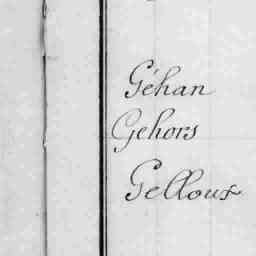 Géhan
Gehors
Gelloux